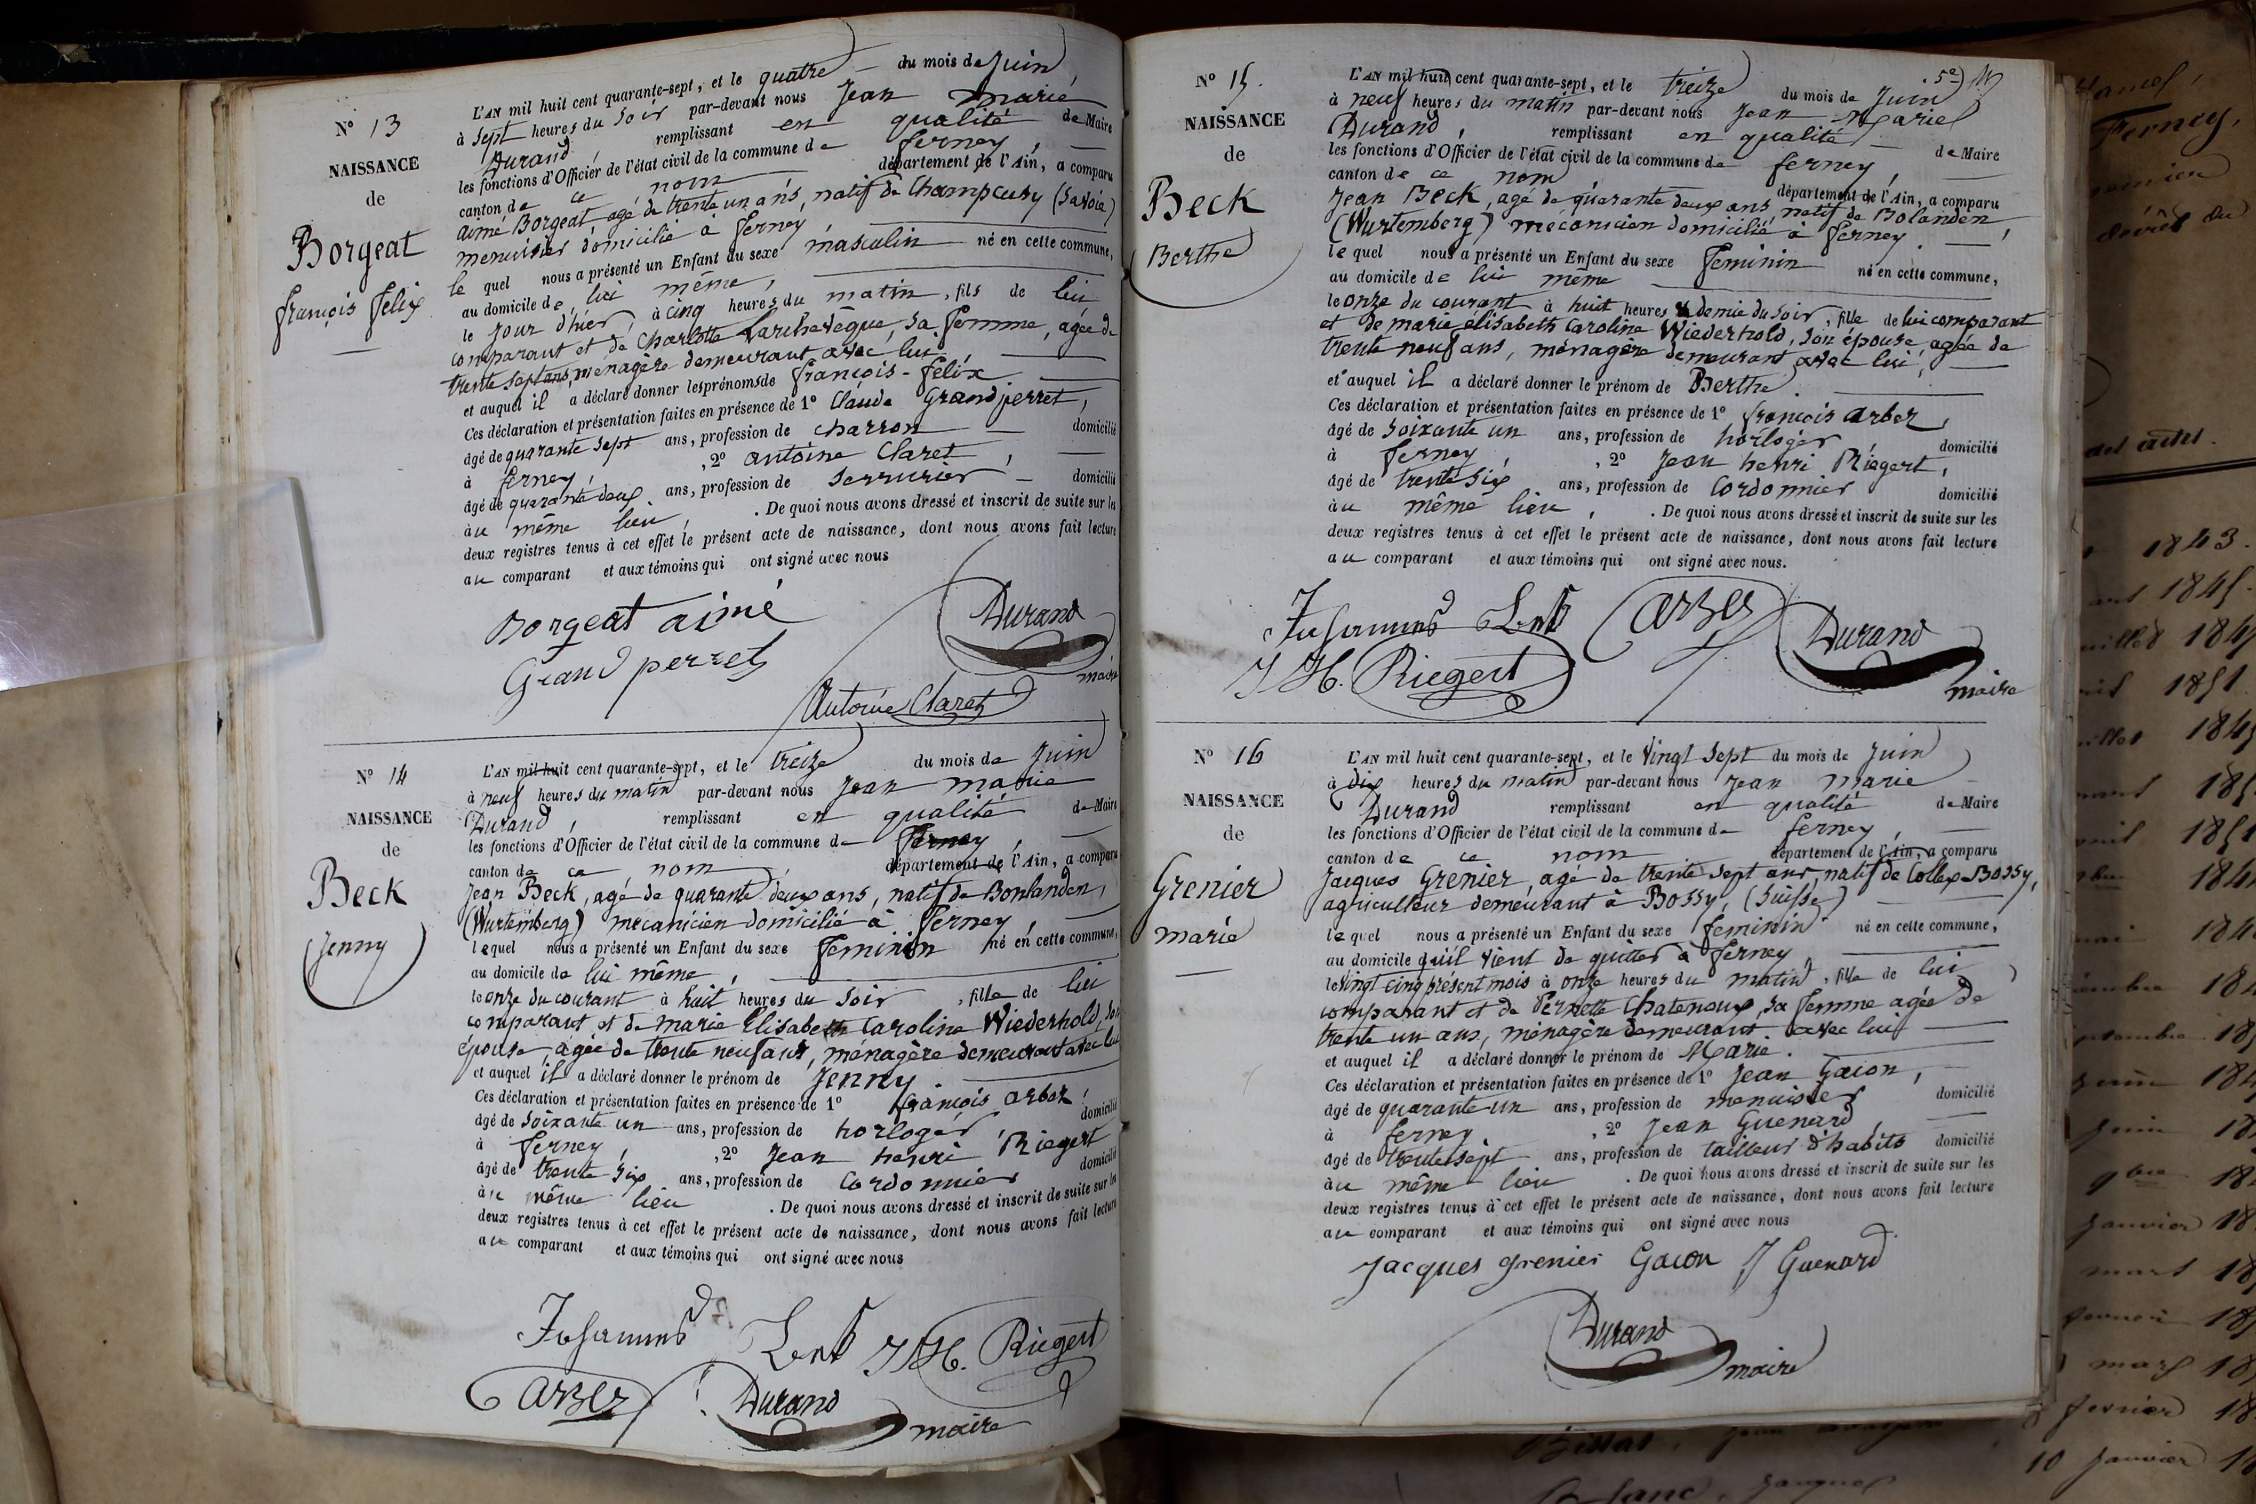 N° 13
NAISSANCE
de
Borgeat
françois felix
L'AN mil huit cent quarante-sept, et le quatre du mois de Juin,
à sept heures du soir par-devant nous Jean marie
Durand, remplissant en qualité de Maire
les fonctions d'Officier de l'état civil de la commune de ferney,
canton de ce nom département de l'Ain, a comparu
aimé Borgeat agé de trente un ans, natif de Champcury (Savoie)
menuisier domicilié à ferney
le quel nous a présenté un Enfant du sexe masculin né en cette commune,
au domicile de lui même,
le jour d'hier, à cinq heures du matin, fils de lui
comparant et de Charlotte Larchevêque, sa femme, agée de
trente sept ans, ménagère demeurant avec lui,
et auquel il a déclaré donner les prénoms de françois-félix
Ces déclaration et présentation faites en présence de 1° Claude Grandperret,
âgé de quarante sept ans, profession de charron domicilié
à ferney, , 2° antoine Claret,
âgé de quarante deux ans, profession de serrurier domicilié
au même lieu, . De quoi nous avons dressé et inscrit de suite sur les
deux registres tenus à cet effet le présent acte de naissance, dont nous avons fait lecture
au comparant et aux témoins qui ont signé avec nous
Borgeat aimé Durand
Grandperret maire
Antoine Claret
N° 14
NAISSANCE
de
Beck
Jenny
L'AN mil huit cent quarante-sept, et le treize du mois de Juin
à neuf heures du matin par-devant nous Jean marie
Durand, remplissant en qualité de Maire
les fonctions d'Officier de l'état civil de la commune de Ferney,
canton de ce nom, département de l'Ain, a comparu
Jean Beck, agé de quarante deux ans, natif de Bonlanden,
(Wurtemberg) mecanicien domicilié à ferney,
lequel nous a présenté un Enfant du sexe feminin né en cette commune,
au domicile de lui même,
le onze du courant à huit heures du soir, fille de lui
comparant et de marie Elisabeth Caroline Wiederhold, son
épouse, agée de trente neuf ans, ménagère demeurant avec lui
et auquel il a déclaré donner le prénom de Jenny.
Ces déclaration et présentation faites en présence de 1° françois arber,
âgé de soixante un ans, profession de horloger domicilié
à ferney, , 2° Jean henri Riegert
âgé de trente six ans, profession de Cordonnier domicilié
au même lieu . De quoi nous avons dressé et inscrit de suite sur les
deux registres tenus à cet effet le présent acte de naissance, dont nous avons fait lecture
au comparant et aux témoins qui ont signé avec nous
Johannes J H. Riegert
arber Durand
maire
N° 15.
NAISSANCE
de
Beck
Berthe
5e
L'AN mil huit cent quarante-sept, et le treize du mois de Juin
à neuf heures du matin par-devant nous Jean Marie
Durand, remplissant en qualité de Maire
les fonctions d'Officier de l'état civil de la commune de ferney,
canton de ce nom département de l'Ain, a comparu
Jean Beck, agé de quarante deux ans natif de Bolanden,
(Wurtemberg) mécanicien domicilié à ferney.
le quel nous a présenté un Enfant du sexe feminin né en cette commune,
au domicile de lui même
le onze du courant à huit heures & demie du soir, fille de lui comparant
et de marie élisabeth Caroline Wiederhold, son épouse agée de
trente neuf ans, ménagère demeurant avec lui,
et auquel il a déclaré donner le prénom de Berthe
Ces déclaration et présentation faites en présence de 1° françois arber,
âgé de soixante un ans, profession de horloger, domicilié
à ferney, , 2° Jean henri Riegert,
âgé de trente six ans, profession de Cordonnier domicilié
au même lieu, . De quoi nous avons dressé et inscrit de suite sur les
deux registres tenus à cet effet le présent acte de naissance, dont nous avons fait lecture
au comparant et aux témoins qui ont signé avec nous.
Johannes arber Durand
J H. Riegert maire
N° 16
NAISSANCE
de
Grenier
marie
L'AN mil huit cent quarante-sept, et le vingt sept du mois de Juin
à dix heures du matin par-devant nous Jean marie
Durand remplissant en qualité de Maire
les fonctions d'Officier de l'état civil de la commune de ferney,
canton de ce nom département de l'Ain, a comparu
Jacques Grenier, agé de trente sept ans, natif de Collex-Bossy,
agriculteur demeurant à Bossy, (Suisse)
le quel nous a présenté un Enfant du sexe feminin né en cette commune,
au domicile qu'il vient de quitter à ferney,
le vingt cinq présent mois à onze heures du matin, fille de lui
comparant et de Pernette Chatenoux, sa femme agée de
trente un ans, ménagère demeurant avec lui
et auquel il a déclaré donner le prénom de Marie.
Ces déclaration et présentation faites en présence de 1° Jean Gacon,
âgé de quarante un ans, profession de menuisier domicilié
à ferney , 2° Jean Guenard,
âgé de trente sept ans, profession de tailleur d'habits domicilié
au même lieu . De quoi nous avons dressé et inscrit de suite sur les
deux registres tenus à cet effet le présent acte de naissance, dont nous avons fait lecture
au comparant et aux témoins qui ont signé avec nous
Jacques grenier Gacon J Guenard
Durand
maire
Ferney,
1843.
1845.
1851
janvier 18
mars 18
mars 18
fevrier 18
10 Janvier 18